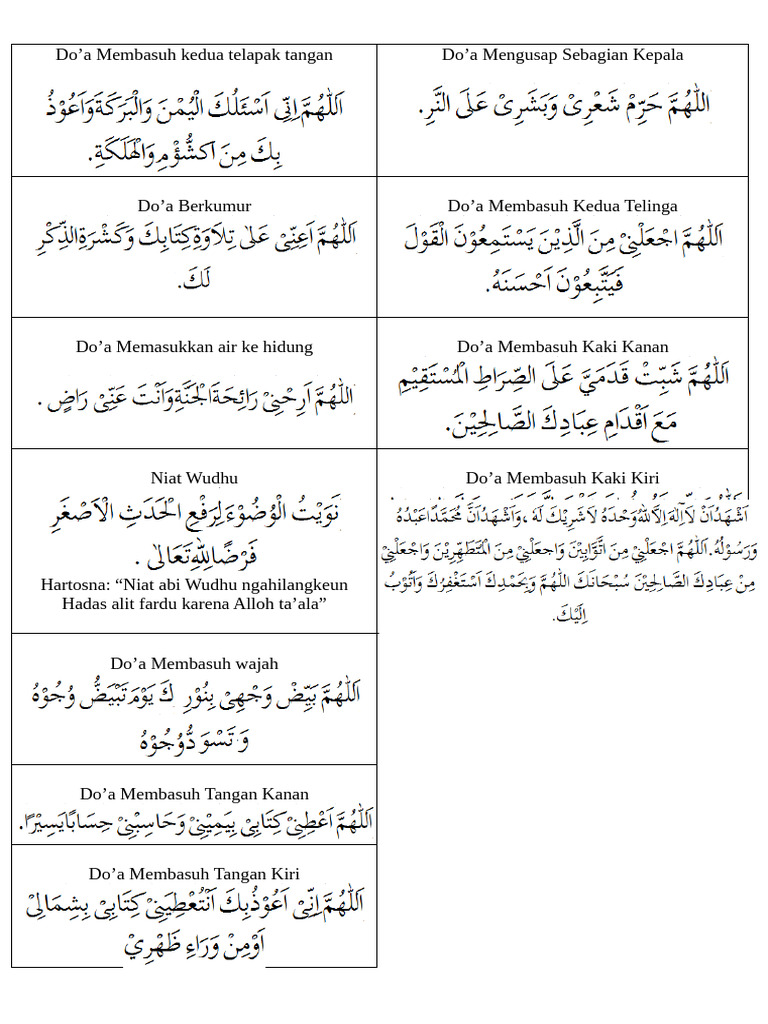 Do’a Membasuh kedua telapak tangan
اَللّٰهُمَّ اِنِّىْ اَسْئَلُكَ الْيُمْنَ وَالْبَرَكَةَ وَاَعُوْذُ
بِكَ مِنَ اَكشُّؤْمِ وَالْهَلَكَةِ.
Do’a Berkumur
اَللّٰهُمَّ اَعِنِّىْ عَلٰى تِلَاوَةِ كِتَابِكَ وَكَشْرَةِ الذِّكْرِ
لَكَ.
Do’a Memasukkan air ke hidung
اَللّٰهُمَّ اَرِحْنِىْ رَائِحَةَ الْجَنَّةِ وَاَنْتَ عَنِّىْ رَاضٍ .
Niat Wudhu
نَوَيْتُ الْوُضُوْءَ لِرَفْعِ الْحَدَثِ الْاَصْغَرِ
فَرْضًا لِلّٰهِ تَعَالٰى .
Hartosna: “Niat abi Wudhu ngahilangkeun
Hadas alit fardu karena Alloh ta’ala”
Do’a Membasuh wajah
اَللّٰهُمَّ بَيِّضْ وَجْهِىْ بِنُوْرِ كَ يَوْمَ تَبْيَضُّ وُجُوْهُ
وَ تَسْوَ دُّوُجُوْهُ
Do’a Membasuh Tangan Kanan
اَللّٰهُمَّ اَعْطِنِىْ كِتَابِىْ بِيَمِيْنِىْ وَحَاسِبْنِىْ حِسَابًا يَسِيْرًا.
Do’a Membasuh Tangan Kiri
اَللّٰهُمَّ اِنِّىْ اَعُوْذُبِكَ اَنْتُعْطِيَنِىْ كِتَابِىْ بِشِمَالِىْ
اَوْمِنْ وَرَاءِ ظَهْرِيْ
Do’a Mengusap Sebagian Kepala
اَللّٰهُمَّ حَرِّمْ شَعْرِىْ وَبَشَرِىْ عَلَى النَّرِ.
Do’a Membasuh Kedua Telinga
اَللّٰهُمَّ اجْعَلْنِىْ مِنَ الَّذِيْنَ يَسْتَمِعُوْنَ الْقَوْلَ
فَيَتَّبِعُوْنَ اَحْسَنَهُ.
Do’a Membasuh Kaki Kanan
اَللّٰهُمَّ شَبِّتْ قَدَمَيَّ عَلَى الصِّرَاطِ الْمُسْتَقِيْمِ
مَعَ اَقْدَامِ عِبَادِكَ الصَّالِحِيْنَ.
Do’a Membasuh Kaki Kiri
اَشْهَدُ اَنْ لَآ اِلٰهَ اِلَّا اللهُ وَحْدَهُ لَا شَرِيْكَ لَهُ ، وَاَشْهَدُ اَنَّ مُحَمَّدًا عَبْدُهُ
وَرَسُوْلُهُ. اَللّٰهُمَّ اجْعَلْنِىْ مِنَ اتَّوَّابِيْنَ وَاجْعَلْنِىْ مِنَ الْمُتَطَهِّرِيْنَ وَاجْعَلْنِىْ
مِنْ عِبَادِكَ الصَّالِحِيْنَ سُبْحَانَكَ اللّٰهُمَّ وَبِحَمْدِكَ اَسْتَغْفِرُكَ وَاَتُوْبُ
اِلَيْكَ.